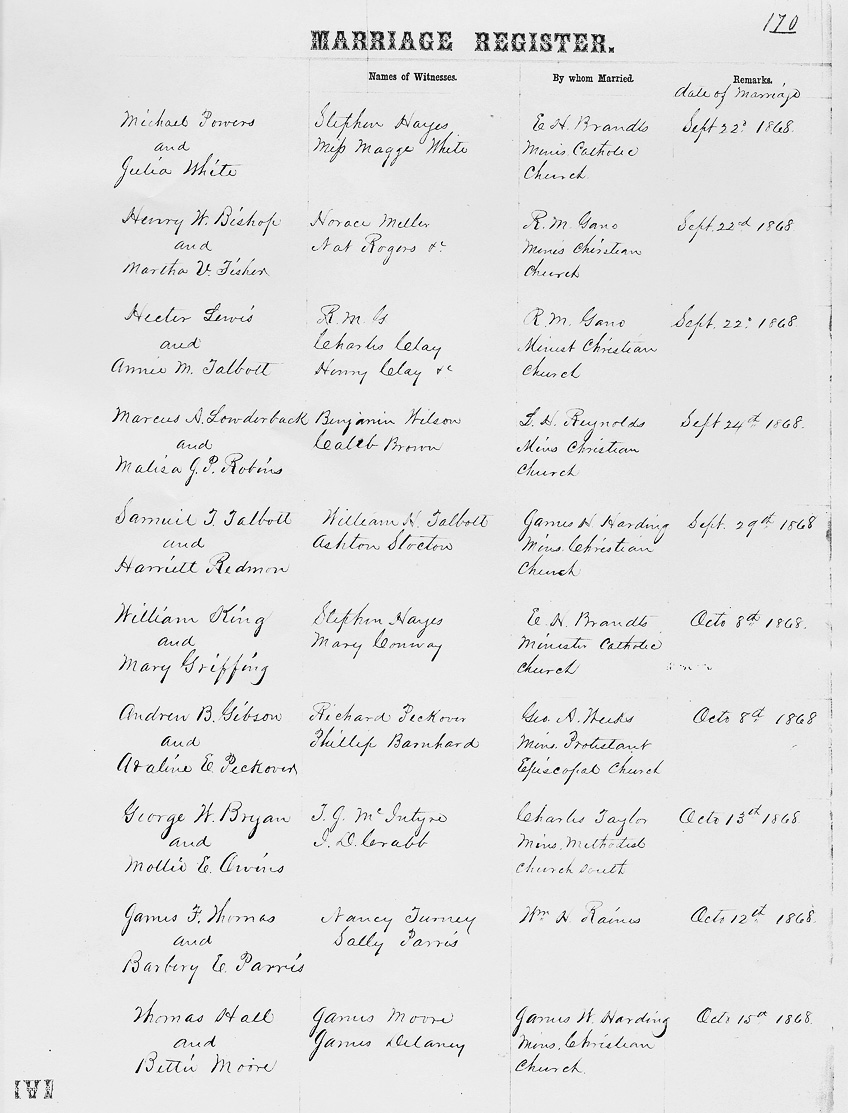 170
MARRIAGE REGISTER.
Names of Witnesses. By whom Married. Remarks.
date of Marriage
Michael Powers Stephen Hayes E. H. Brandts Sept 22d 1868.
and Miss Magge White Minis. Catholic
Julia White Church
Henry W. Bishop Horace Miller R. M. Gano Sept. 22nd 1868
and Nat Rogers &c Minis Christian
Martha V. Fisher Church
Hecter Lewis R. M. G R. M. Gano Sept. 22d 1868
and Charles Clay Minist Christian
Annie M. Talbott Henry Clay &c Church
Marcus A. Lowderback Benjamin Wilson L. H. Reynolds Sept 24th 1868.
and Caleb Brown Mins Christian
Malisa G. P. Robins Church
Samuel T. Talbott William H. Talbott James H Harding Sept. 29th 1868
and Ashton Stocton Mins. Christian
Harriett Redmon Church
William King Stephen Hayes E. H. Brandts Octo 8th 1868.
and Mary Conway Minister Catholic
Mary Griffing Church
Andrew B. Gibson Richard Peckover Geo. A. Weeks Octo 8th 1868
and Phillip Barnhard Mins. Protestant
Avaline E. Peckover Episcopal Church
George W. Bryan T. J. McIntyre Charles Taylor Octo 13th 1868
and I. D. Crabb Mins. Methodist
Mollie E. Owins Church South
James F. Thomas Nancy Turney Wm H. Raines Octo 12th 1868.
and Sally Parris
Barbery E. Parris
Thomas Hall James Moore James W. Harding Octo 15th 1868.
and James Delaney Mins. Christian
Bettie Moore Church.
[V]